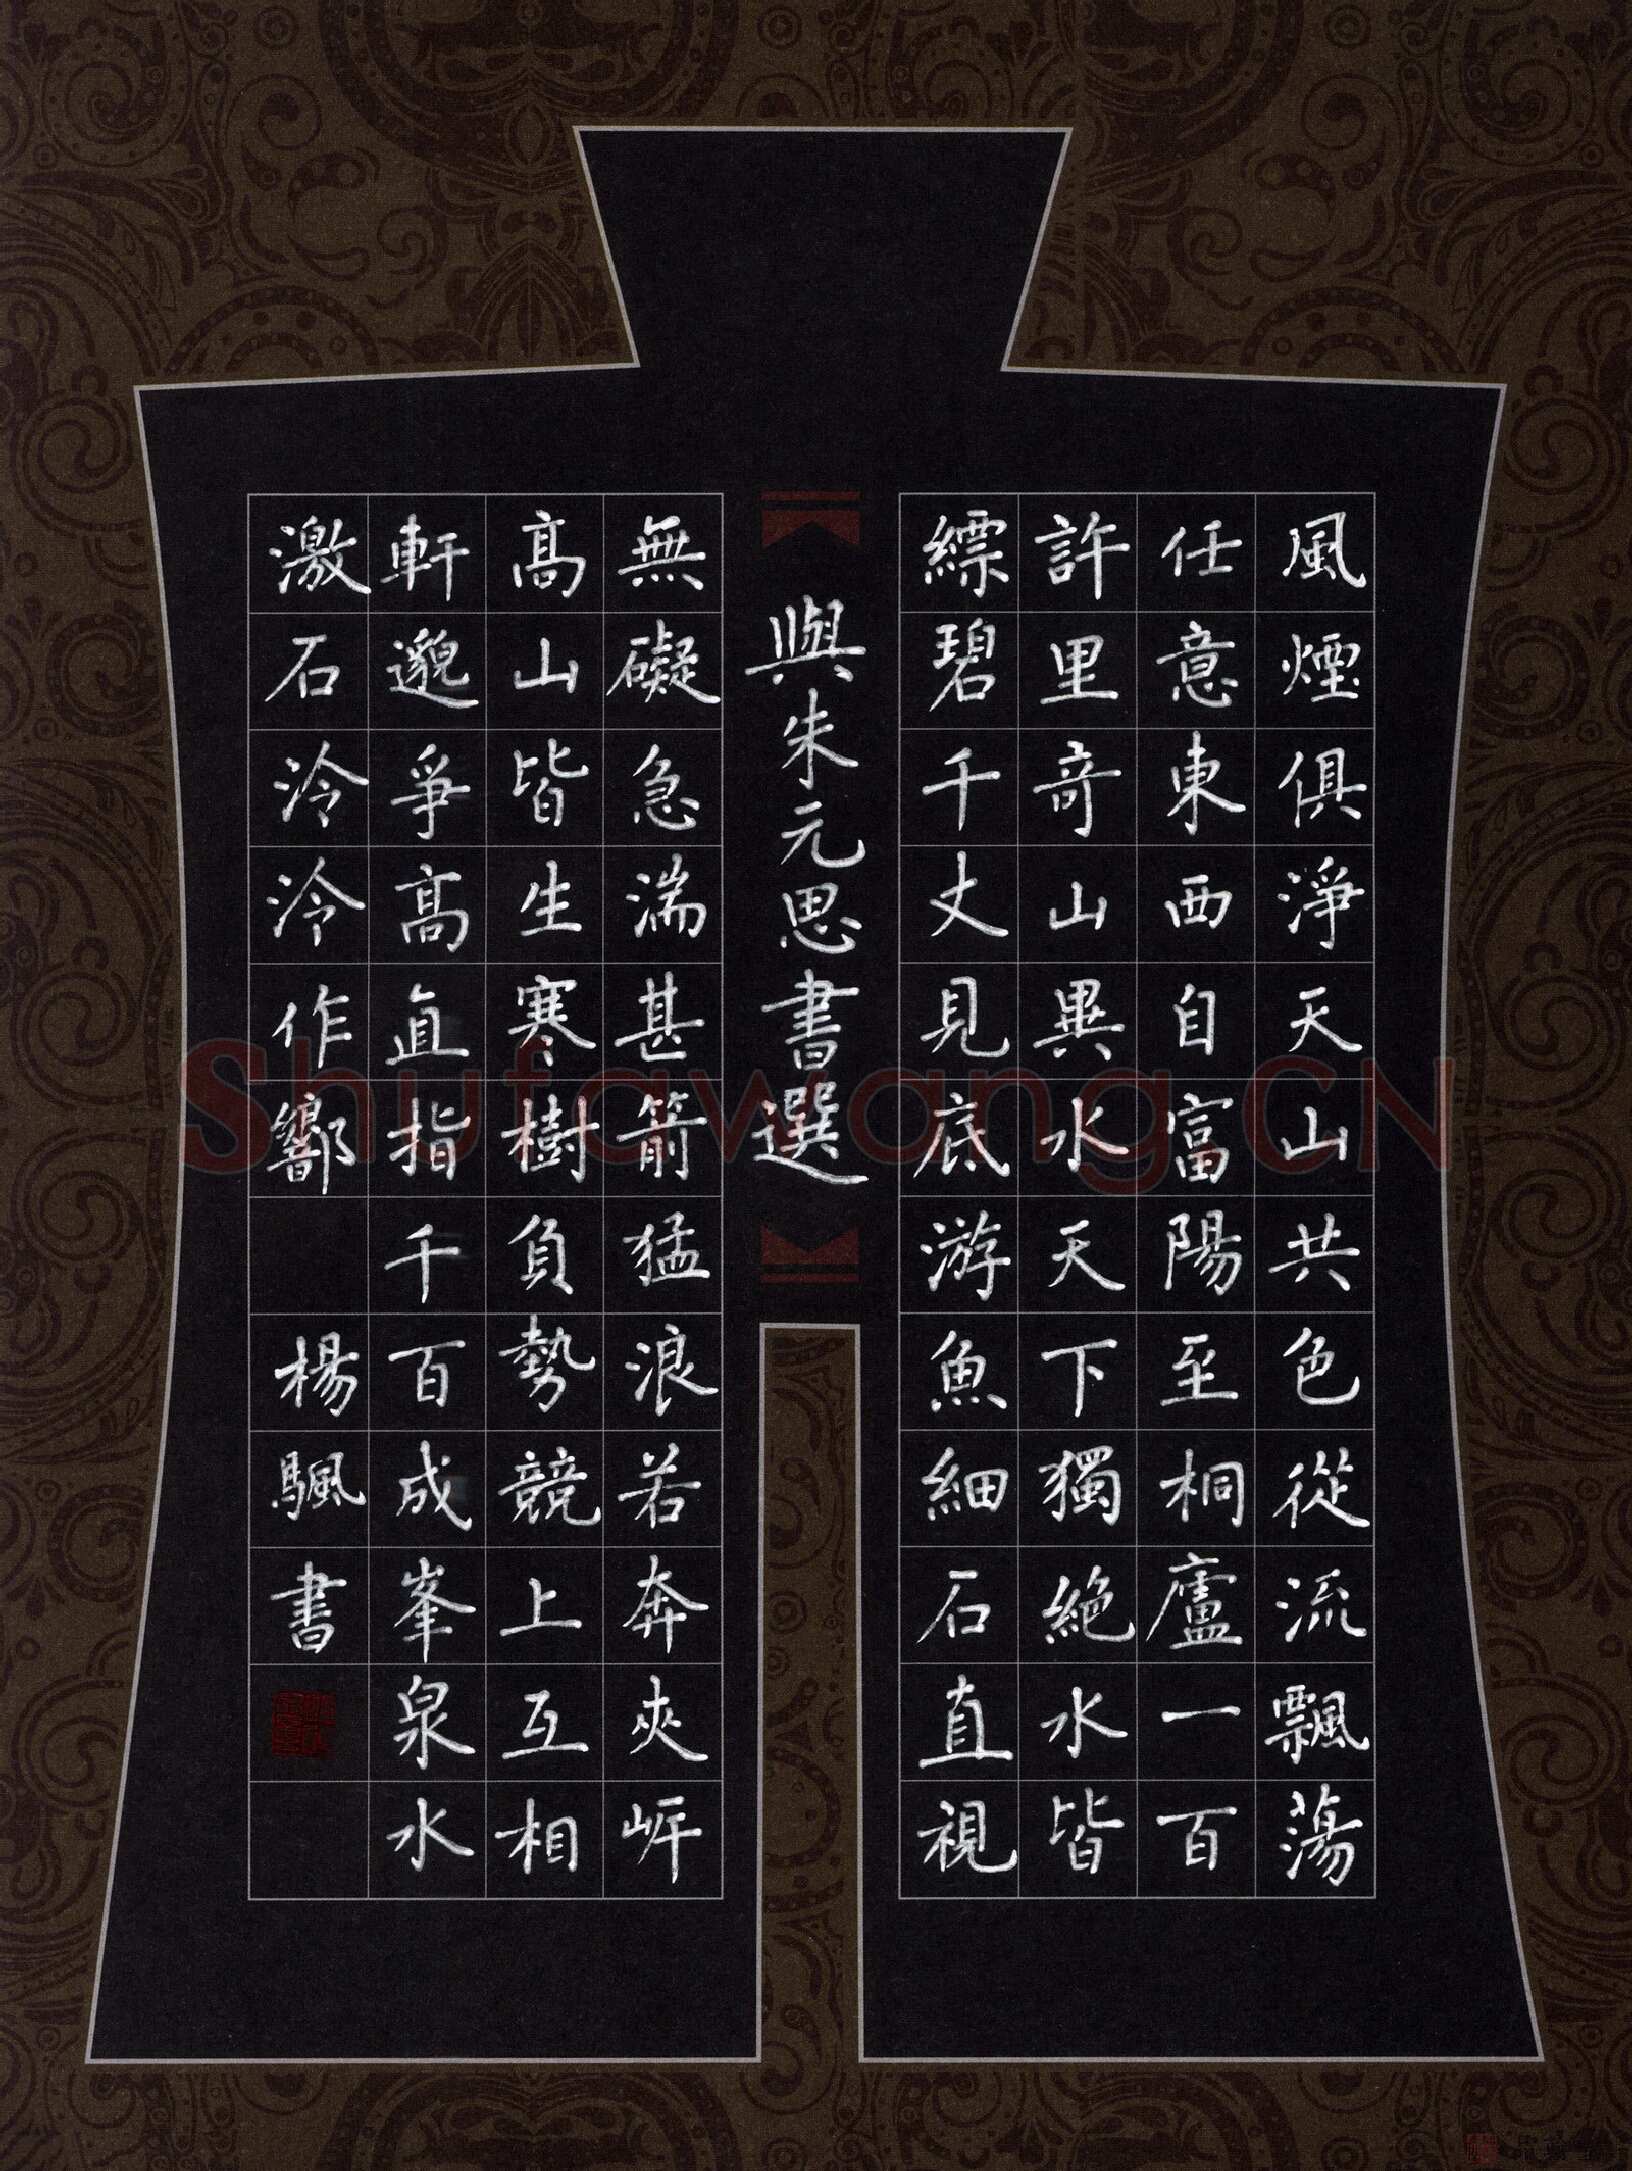 風煙俱淨天山共色從流飄蕩
任意東西自富陽至桐廬一百
許里奇山異水天下獨絕水皆
縹碧千丈見底游魚細石直視
與朱元思書選
無礙急湍甚箭猛浪若奔夾岸
高山皆生寒樹負勢競上互相
軒邈爭高直指千百成峯泉水
激石泠泠作響 楊颿書
Shufawang.CN